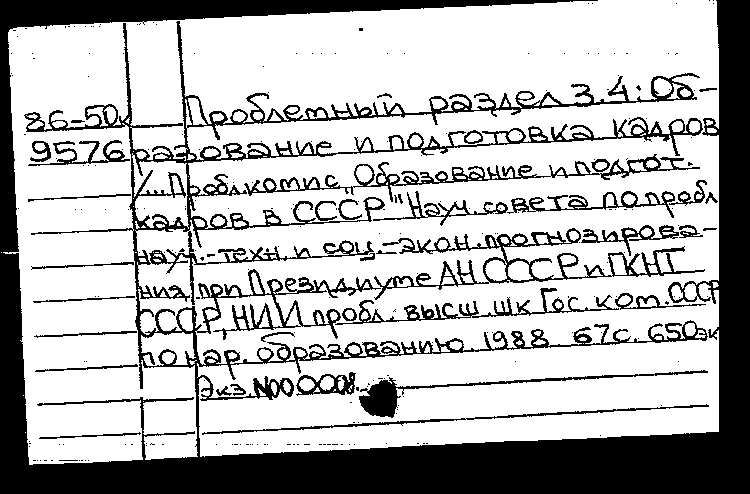 86-50к Проблемный раздел 3.4: Об-
9576 разование и подготовка кадров
/... Пробл.комис. „Образование и подгот.
кадров в СССР" Науч. совета по пробл
науч.-техн. и соц.-экон. прогнозирова-
ния при Президиуме АН СССР и ГКНТ
СССР, НИИ пробл. высш. шк Гос. ком. СССР
по нар. образованию. 1988 67с. 650эк
Экз. №00008.